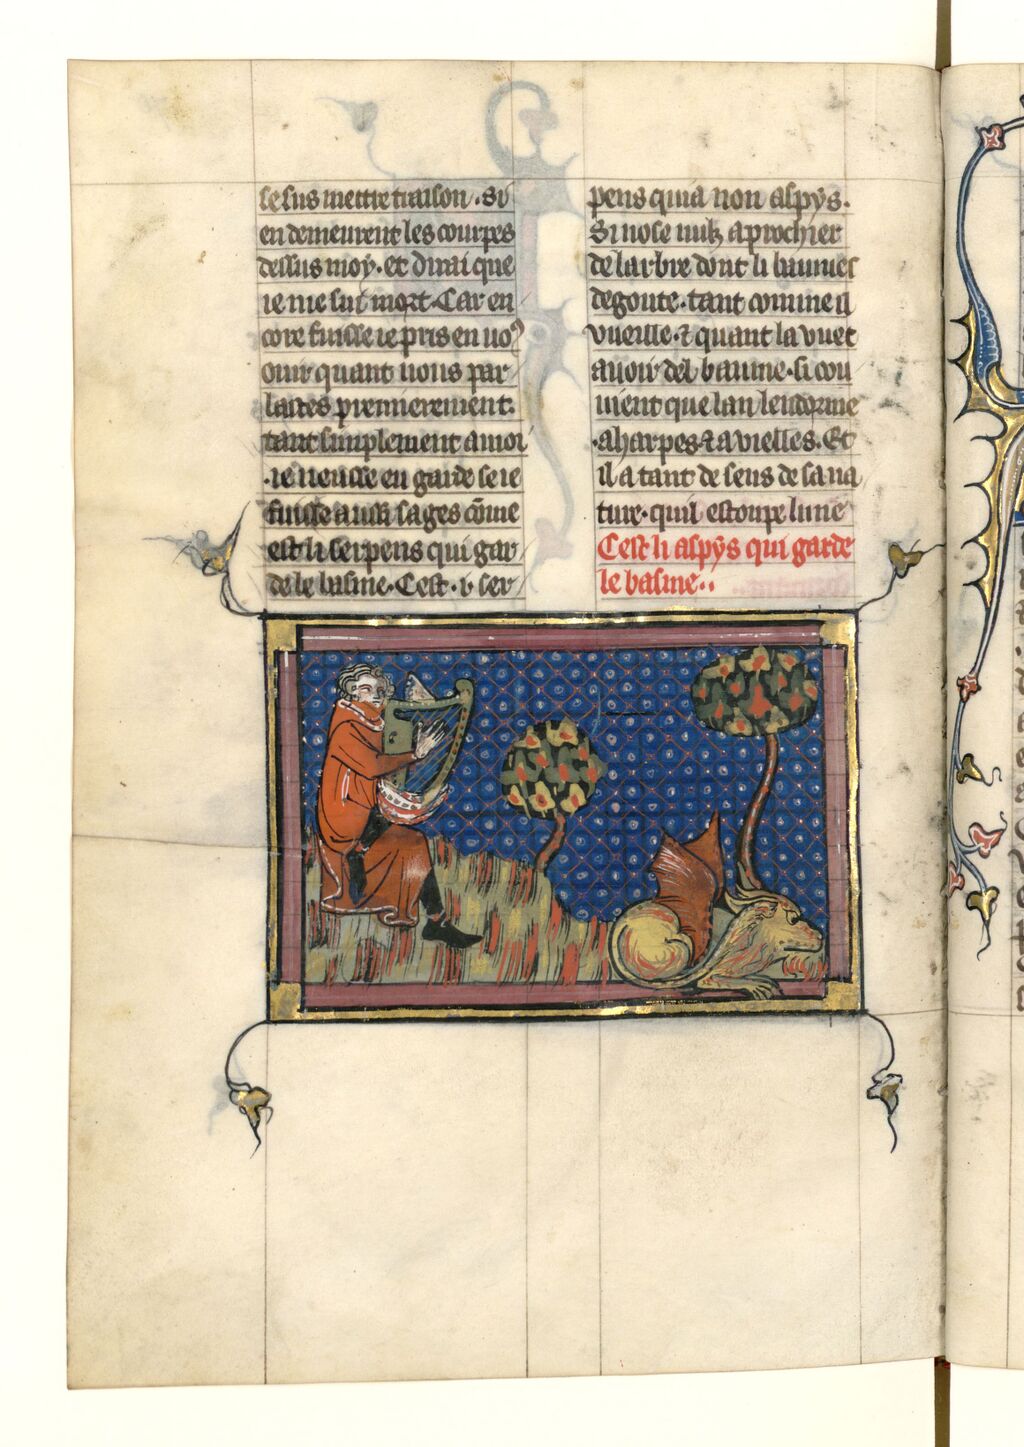 se sus mettre traison. Si
en demeurent les courpes
dessus moy. et dirai que
ie me sui mort. Car en
core fuisse ie pris en uoꝰ
ouir quant uous par
lastes premierement.
tant simplement a moi
.ie neusse en garde se ie
fuisse aussi sages cōme
est li serpens qui gar
de le basme. Cest .i. ser
pens qui a non aspys.
Si nose nulz aprochier
de larbre dont li baumes
degoute. tant comme il
vueille. ⁊ quant la vuet
auoir del baume. si cou
uient que lan lendorme
.a harpes ⁊ a vielles. Et
il a tant de sens de sa na
ture. quil estoupe lune
Cest li aspys qui garde
le basme..